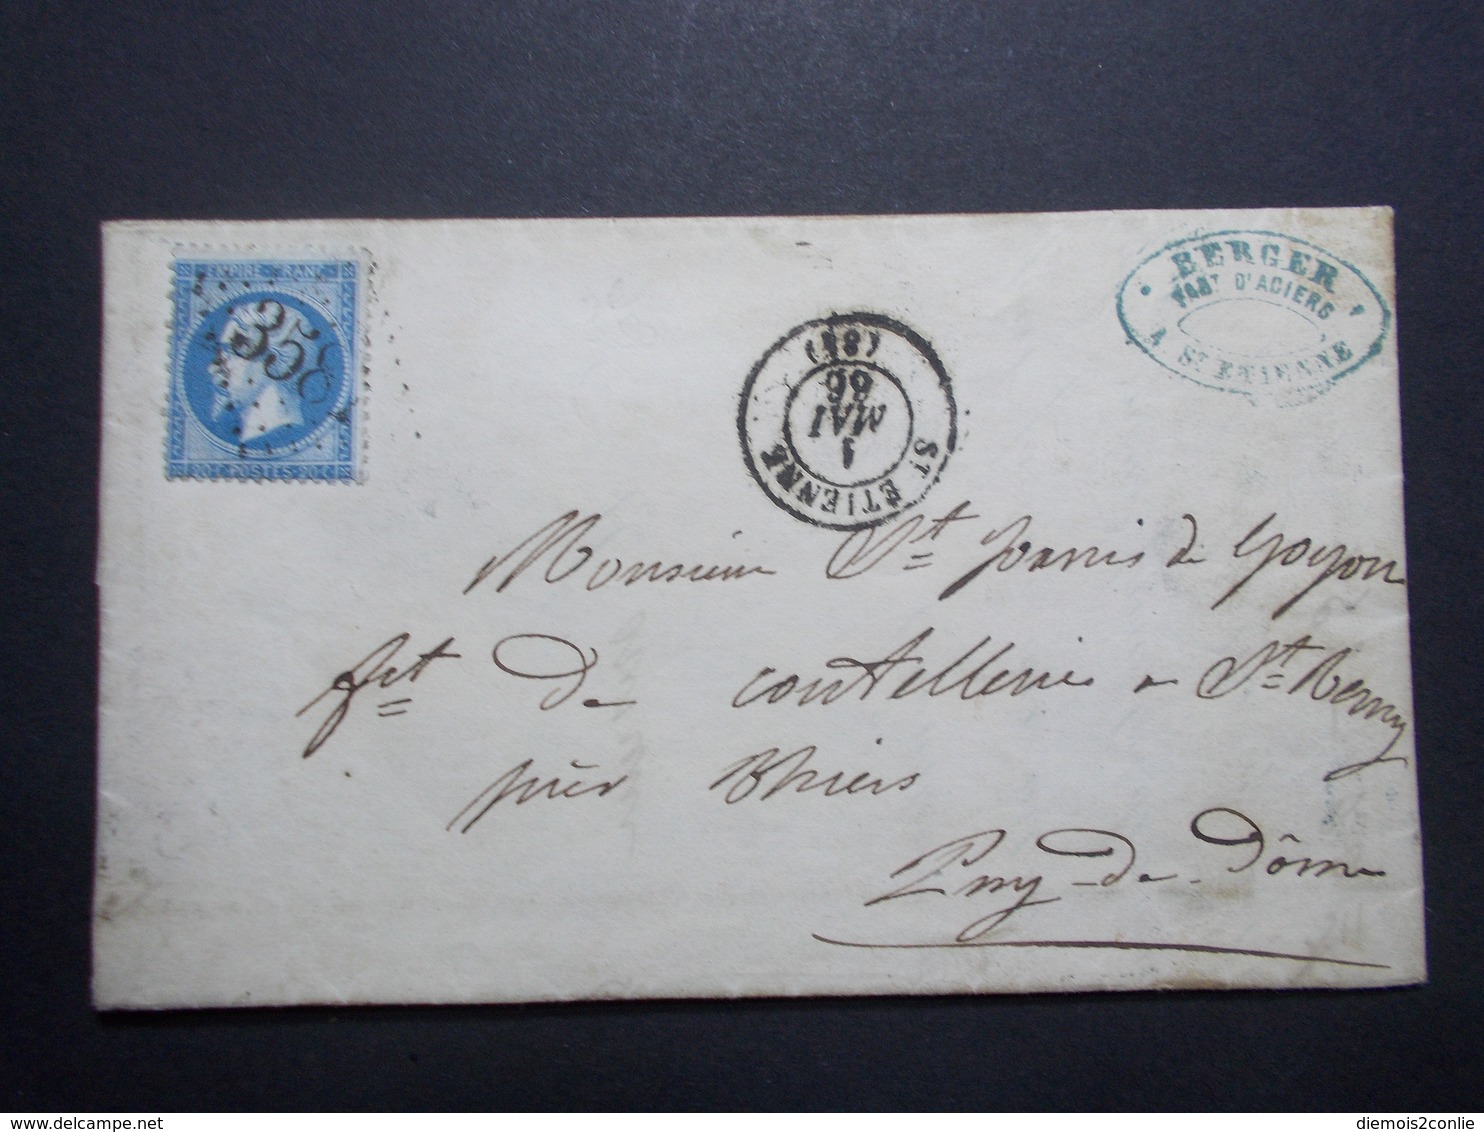 EMPIRE · FRANC
358
20 · C · POSTES · 20 · C
ST ETIENNE
1
MAI
66
BERGER
FABT D'ACIERS
A ST ETIENNE
Monsieur St Joanis de Goyon
fct de coutellerie a St Remy
près Thiers
Puy-de-Dôme
diemois2conlie